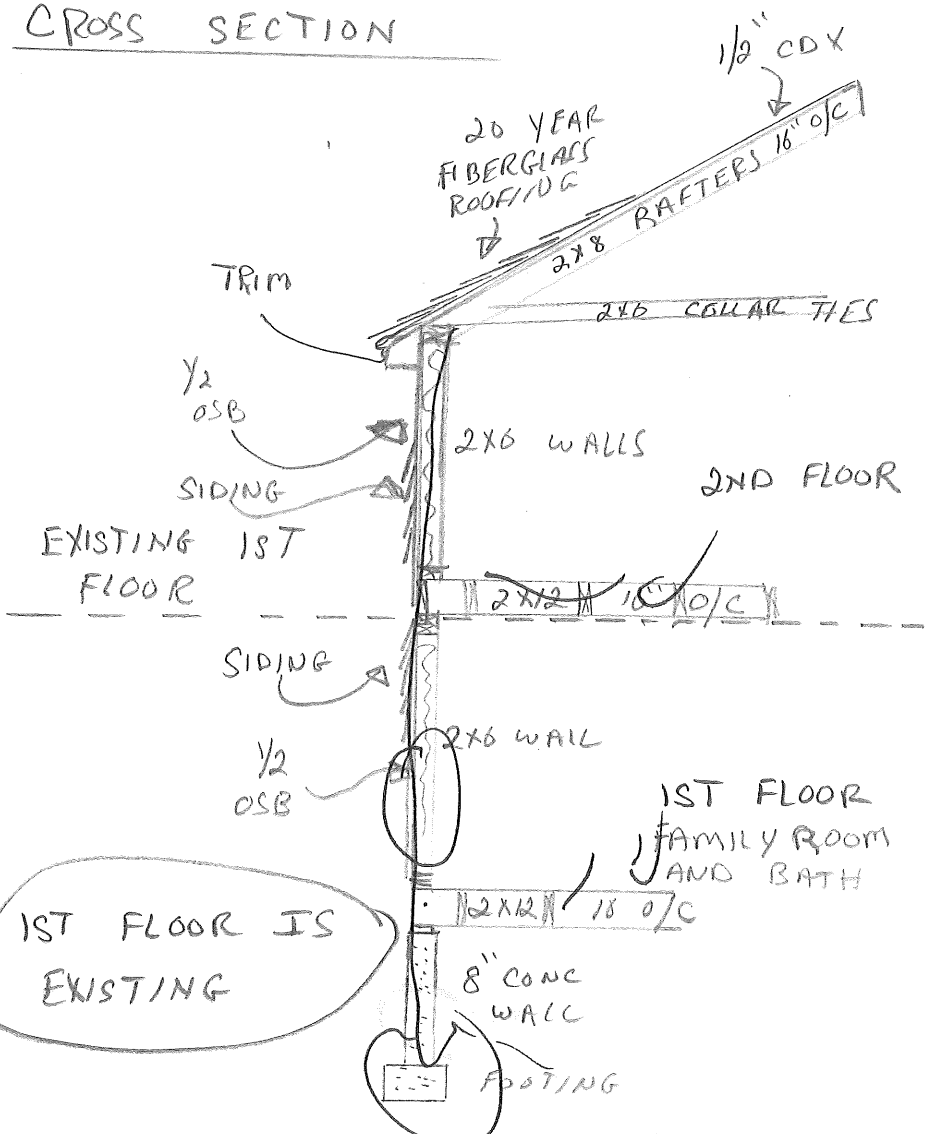 CROSS SECTION
1/2" CDX
20 YEAR
FIBERGLASS
ROOFING
2X8 RAFTERS 16" O/C
TRIM
2X6 COLLAR TIES
1/2
OSB
2X6 WALLS
SIDING
2ND FLOOR
EXISTING 1ST
FLOOR
2X12 16" O/C
SIDING
2X6 WALL
1/2
OSB
1ST FLOOR
FAMILY ROOM
AND BATH
2X12 16 O/C
1ST FLOOR IS
EXISTING
8" CONC
WALL
FOOTING